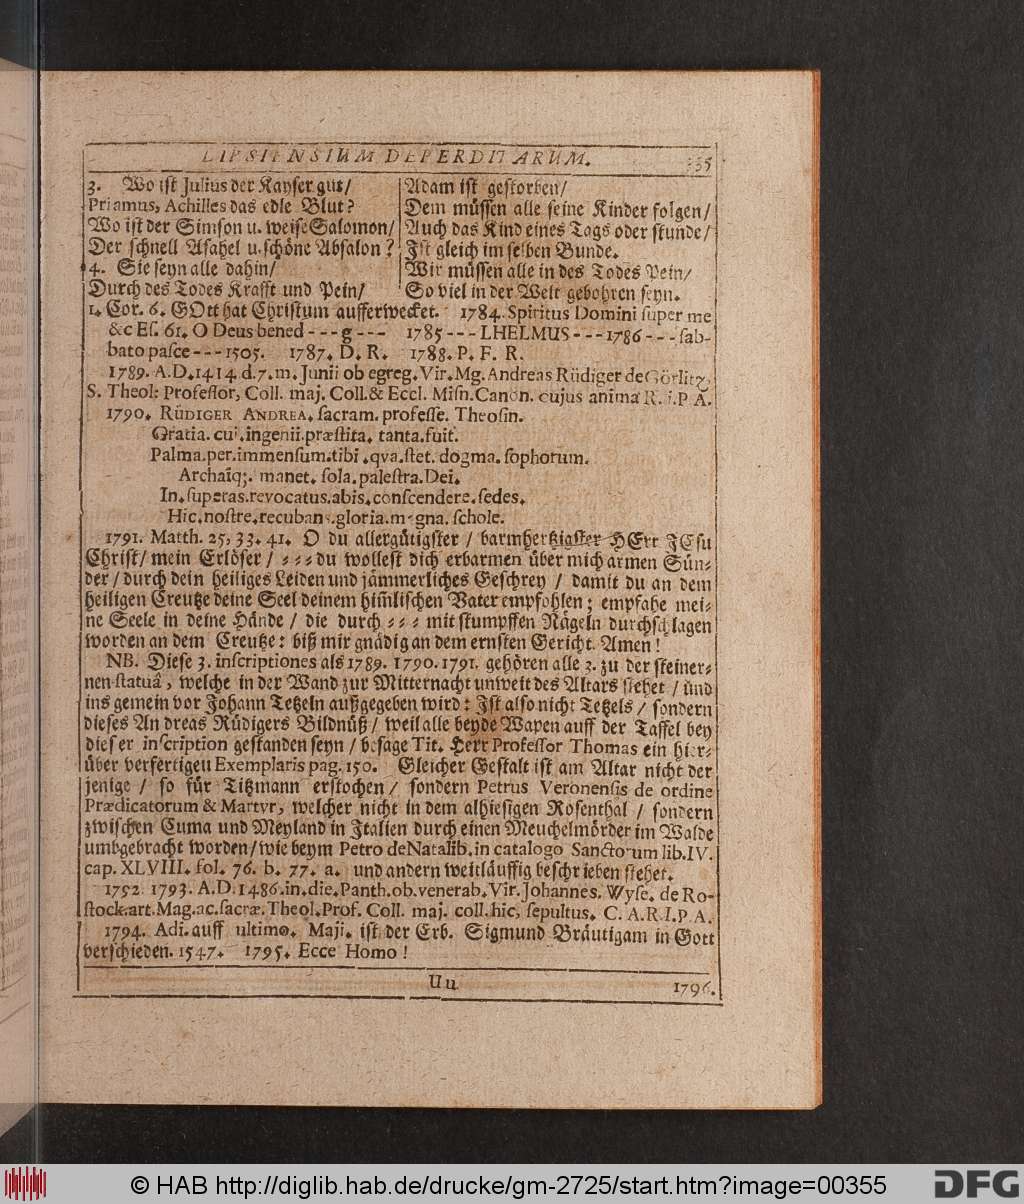 LIPSIENSIUM DEPERDITARUM. 335
3. Wo ist Julius der Kayser gut/
Priamus, Achilles das edle Blut?
Wo ist der Simson u. weise Salomon/
Der schnell Asahel u. schöne Absalon?
4. Sie seyn alle dahin/
Durch des Todes Krafft und Pein/
Adam ist gestorben/
Dem müssen alle seine Kinder folgen/
Auch das Kind eines Tags oder stunde/
Ist gleich im selben Bunde.
Wir müssen alle in des Todes Pein/
So viel in der Welt gebohren seyn.
1. Cor. 6. GOtt hat Christum aufferwecket. 1784. Spiritus Domini super me
&c Es. 61. O Deus bened - - - g - - - 1785 - - - LHELMUS - - - 1786 - - - sab-
bato pasce - - - 1505. 1787. D. R. 1788. P. F. R.
1789. A.D. 1414. d. 7. m. Junii ob egreg. Vir. Mg. Andreas Rüdiger de Görlitz,
S. Theol: Professor, Coll. maj. Coll. & Eccl. Misn. Canon. cujus anima R. i. P A.
1790. RÜDIGER ANDREA. sacram. professe. Theosin.
Gratia. cui. ingenii. præstita. tanta. fuit.
Palma. per. immensum. tibi. qva. stet. dogma. sophorum.
Archaiq;. manet. sola. palestra. Dei.
In. superas. revocatus. abis. conscendere. sedes.
Hic. nostre. recubans. gloria. magna. schole.
1791. Matth. 25, 33. 41. O du allergütigster / barmhertzigster HErr JEsu
Christ/ mein Erlöser / - - - du wollest dich erbarmen über mich armen Sün-
der / durch dein heiliges Leiden und jämmerliches Geschrey / damit du an dem
heiligen Creutze deine Seel deinem himlischen Vater empfohlen; empfahe mei-
ne Seele in deine Hände / die durch - - - mit stumpffen Nägeln durchschlagen
worden an dem Creutze: biß mir gnädig an dem ernsten Gericht. Amen!
NB. Diese 3. inscriptiones als 1789. 1790. 1791. gehören alle 3. zu der steiner-
nen statuâ, welche in der Wand zur Mitternacht unweit des Altars stehet / und
ins gemein vor Johann Tetzeln außgegeben wird: Ist also nicht Tetzels / sondern
dieses Andreas Rüdigers Bildnüß / weil alle beyde Wapen auff der Taffel bey
dieser inscription gestanden seyn / besage Tit. Herr Professor Thomas ein hier-
über verfertigen Exemplaris pag. 150. Gleicher Gestalt ist am Altar nicht der
jenige / so für Titzmann erstochen / sondern Petrus Veronensis de ordine
Prædicatorum & Martyr, welcher nicht in dem alhiesigen Rosenthal / sondern
zwischen Cuma und Meyland in Italien durch einen Meuchelmörder im Walde
umbgebracht worden / wie beym Petro de Natalib. in catalogo Sanctorum lib. IV.
cap. XLVIII. fol. 76. b. 77. a. und andern weitläuffig beschrieben stehet.
1792. 1793. A.D. 1486. in. die. Panth. ob. venerab. Vir. Johannes. Wyse. de Ro-
stock. art. Mag. ac. sacræ. Theol. Prof. Coll. maj. coll. hic, sepultus. C. A. R. I. P A.
1794. Adi. auff ultimo. Maji. ist der Erb. Sigmund Bräutigam in Gott
verschieden. 1547. 1795. Ecce Homo!
Uu 1796.
© HAB http://diglib.hab.de/drucke/gm-2725/start.htm?image=00355
DFG